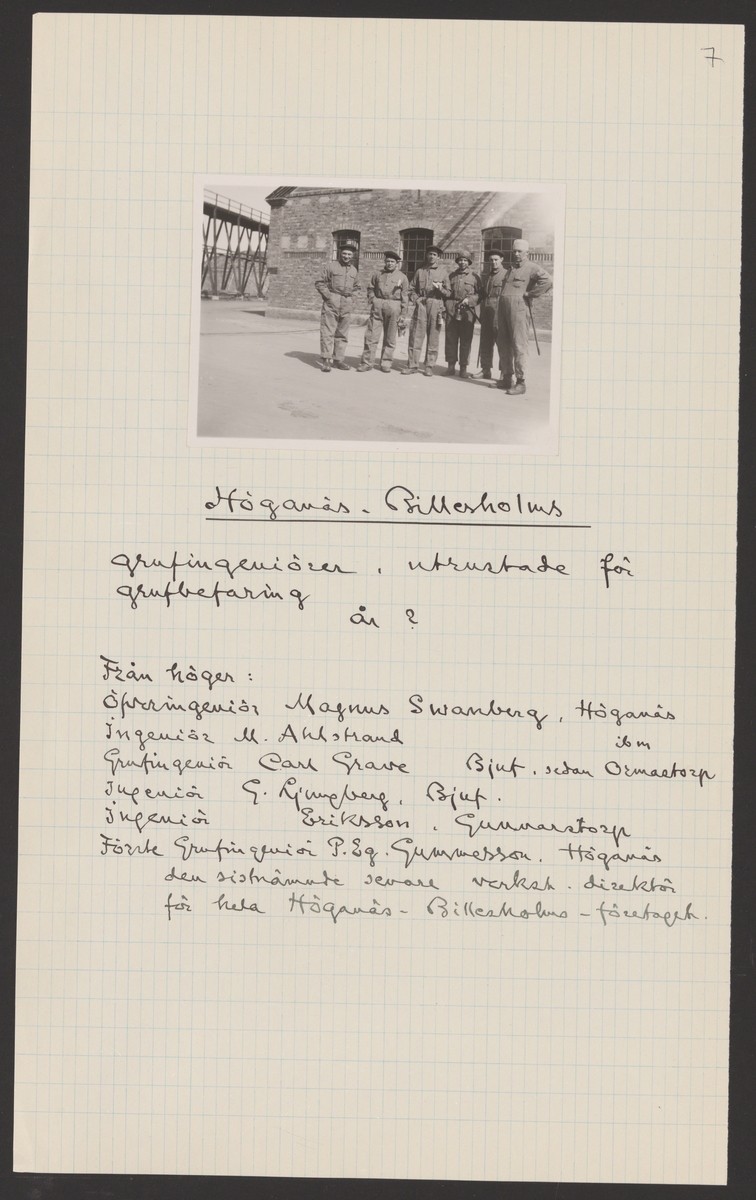 7
Höganäs - Billesholms
grufingeniörer, utrustade för
grufbefaring
år ?
Från höger :
Öfveringeniör Magnus Swanberg, Höganäs
Ingeniör M. Ahlstrand ibm
Grufingeniör Carl Grave Bjuf, sedan Ormastorp
Ingeniör G. Ljungberg, Bjuf.
Ingeniör Eriksson, Gunnarstorp
Förste Grufingeniör P. Eg. Gummesson, Höganäs
den sistnämnde senare verkst. direktör
för hela Höganäs - Billesholms - företaget.